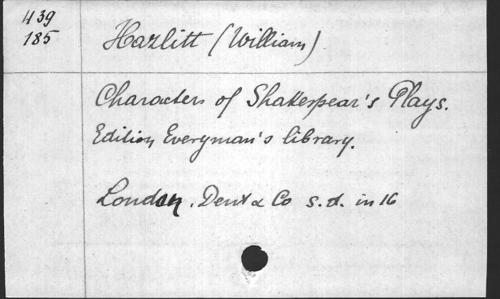 439
185
Hazlitt (William)
Characters of Shakespear's Plays.
Edition Everyman's library.
London, Dent & Co s.d. in 16